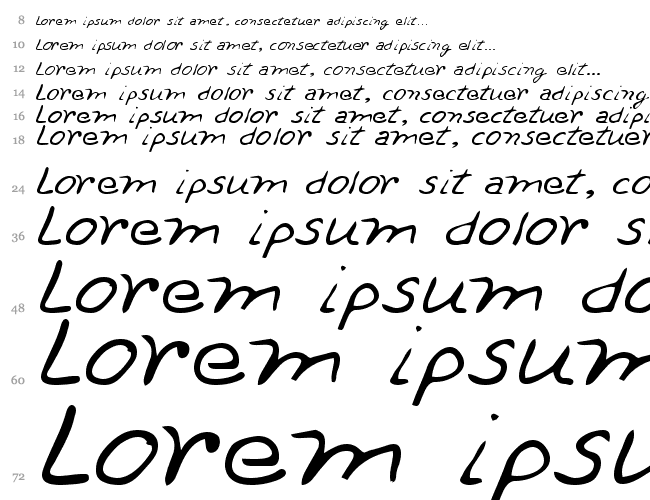 8 Lorem ipsum dolor sit amet, consectetuer adipiscing elit...
10 Lorem ipsum dolor sit amet, consectetuer adipiscing elit...
12 Lorem ipsum dolor sit amet, consectetuer adipiscing elit...
14 Lorem ipsum dolor sit amet, consectetuer adipiscing
16 Lorem ipsum dolor sit amet, consectetuer adipi
18 Lorem ipsum dolor sit amet, consectetuer
24 Lorem ipsum dolor sit amet, co
36 Lorem ipsum dolor s
48 Lorem ipsum do
60 Lorem ipsum
72 Lorem ipsu